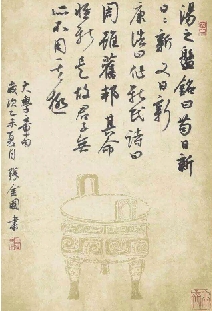 湯之盤銘曰苟日新
日〻新又日新
康誥曰作新民詩曰
周雖舊邦其命
惟新是故君子無
所不用其極
大學章句
歲次乙未夏月書